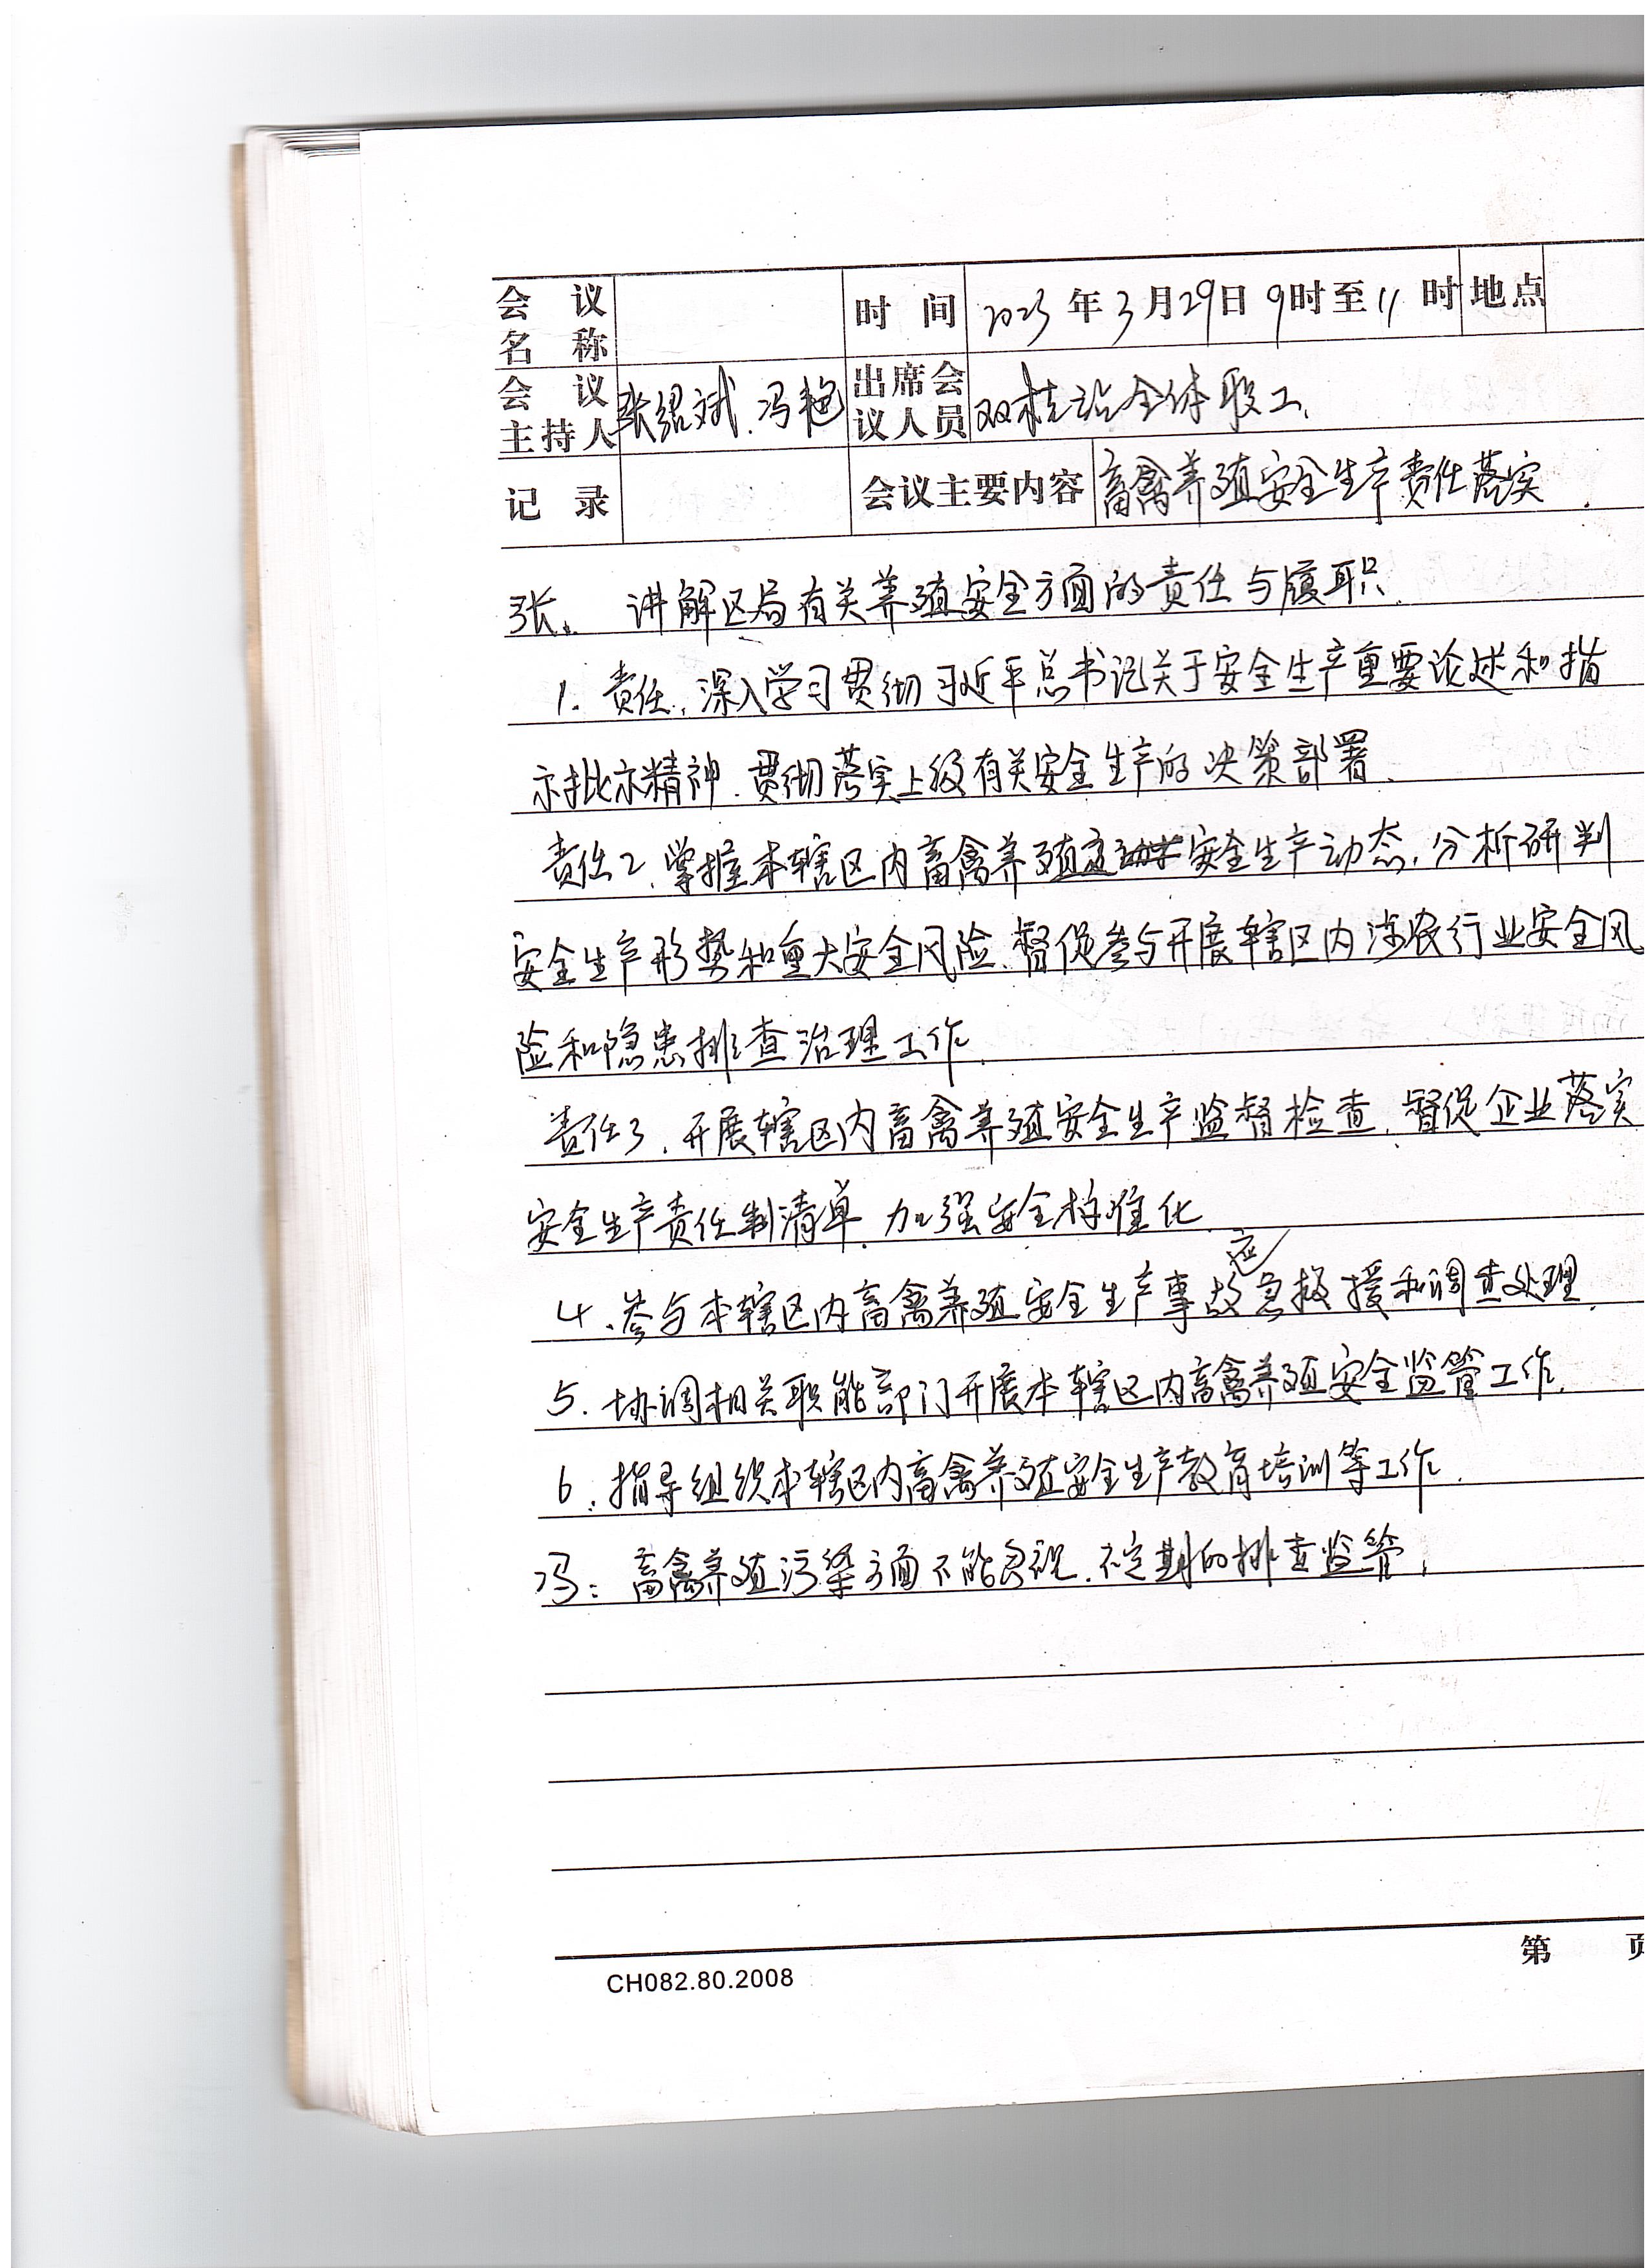 会议名称 时间 2023年3月29日9时至11时 地点
会议主持人 张绍斌、冯艳 出席会议人员 双桂站全体职工、
记录 会议主要内容 畜禽养殖安全生产责任落实.
张、讲解区局有关养殖安全方面的责任与履职.
1. 责任、深入学习贯彻习近平总书记关于安全生产重要论述和指
示批示精神、贯彻落实上级有关安全生产的决策部署.
责任2、掌握本辖区内畜禽养殖安全生产动态、分析研判
安全生产形势和重大安全风险、督促参与开展辖区内涉农行业安全风
险和隐患排查治理工作.
责任3、开展辖区内畜禽养殖安全生产监督检查、督促企业落实
安全生产责任制清单、加强安全标准化.
4、参与本辖区内畜禽养殖安全生产事故应急救援和调查处理.
5. 协调相关职能部门开展本辖区内畜禽养殖安全监管工作.
6、指导组织本辖区内畜禽养殖安全生产教育培训等工作.
冯：畜禽养殖污染方面不能忽视、不定期的排查监管.
第 页
CH082.80.2008